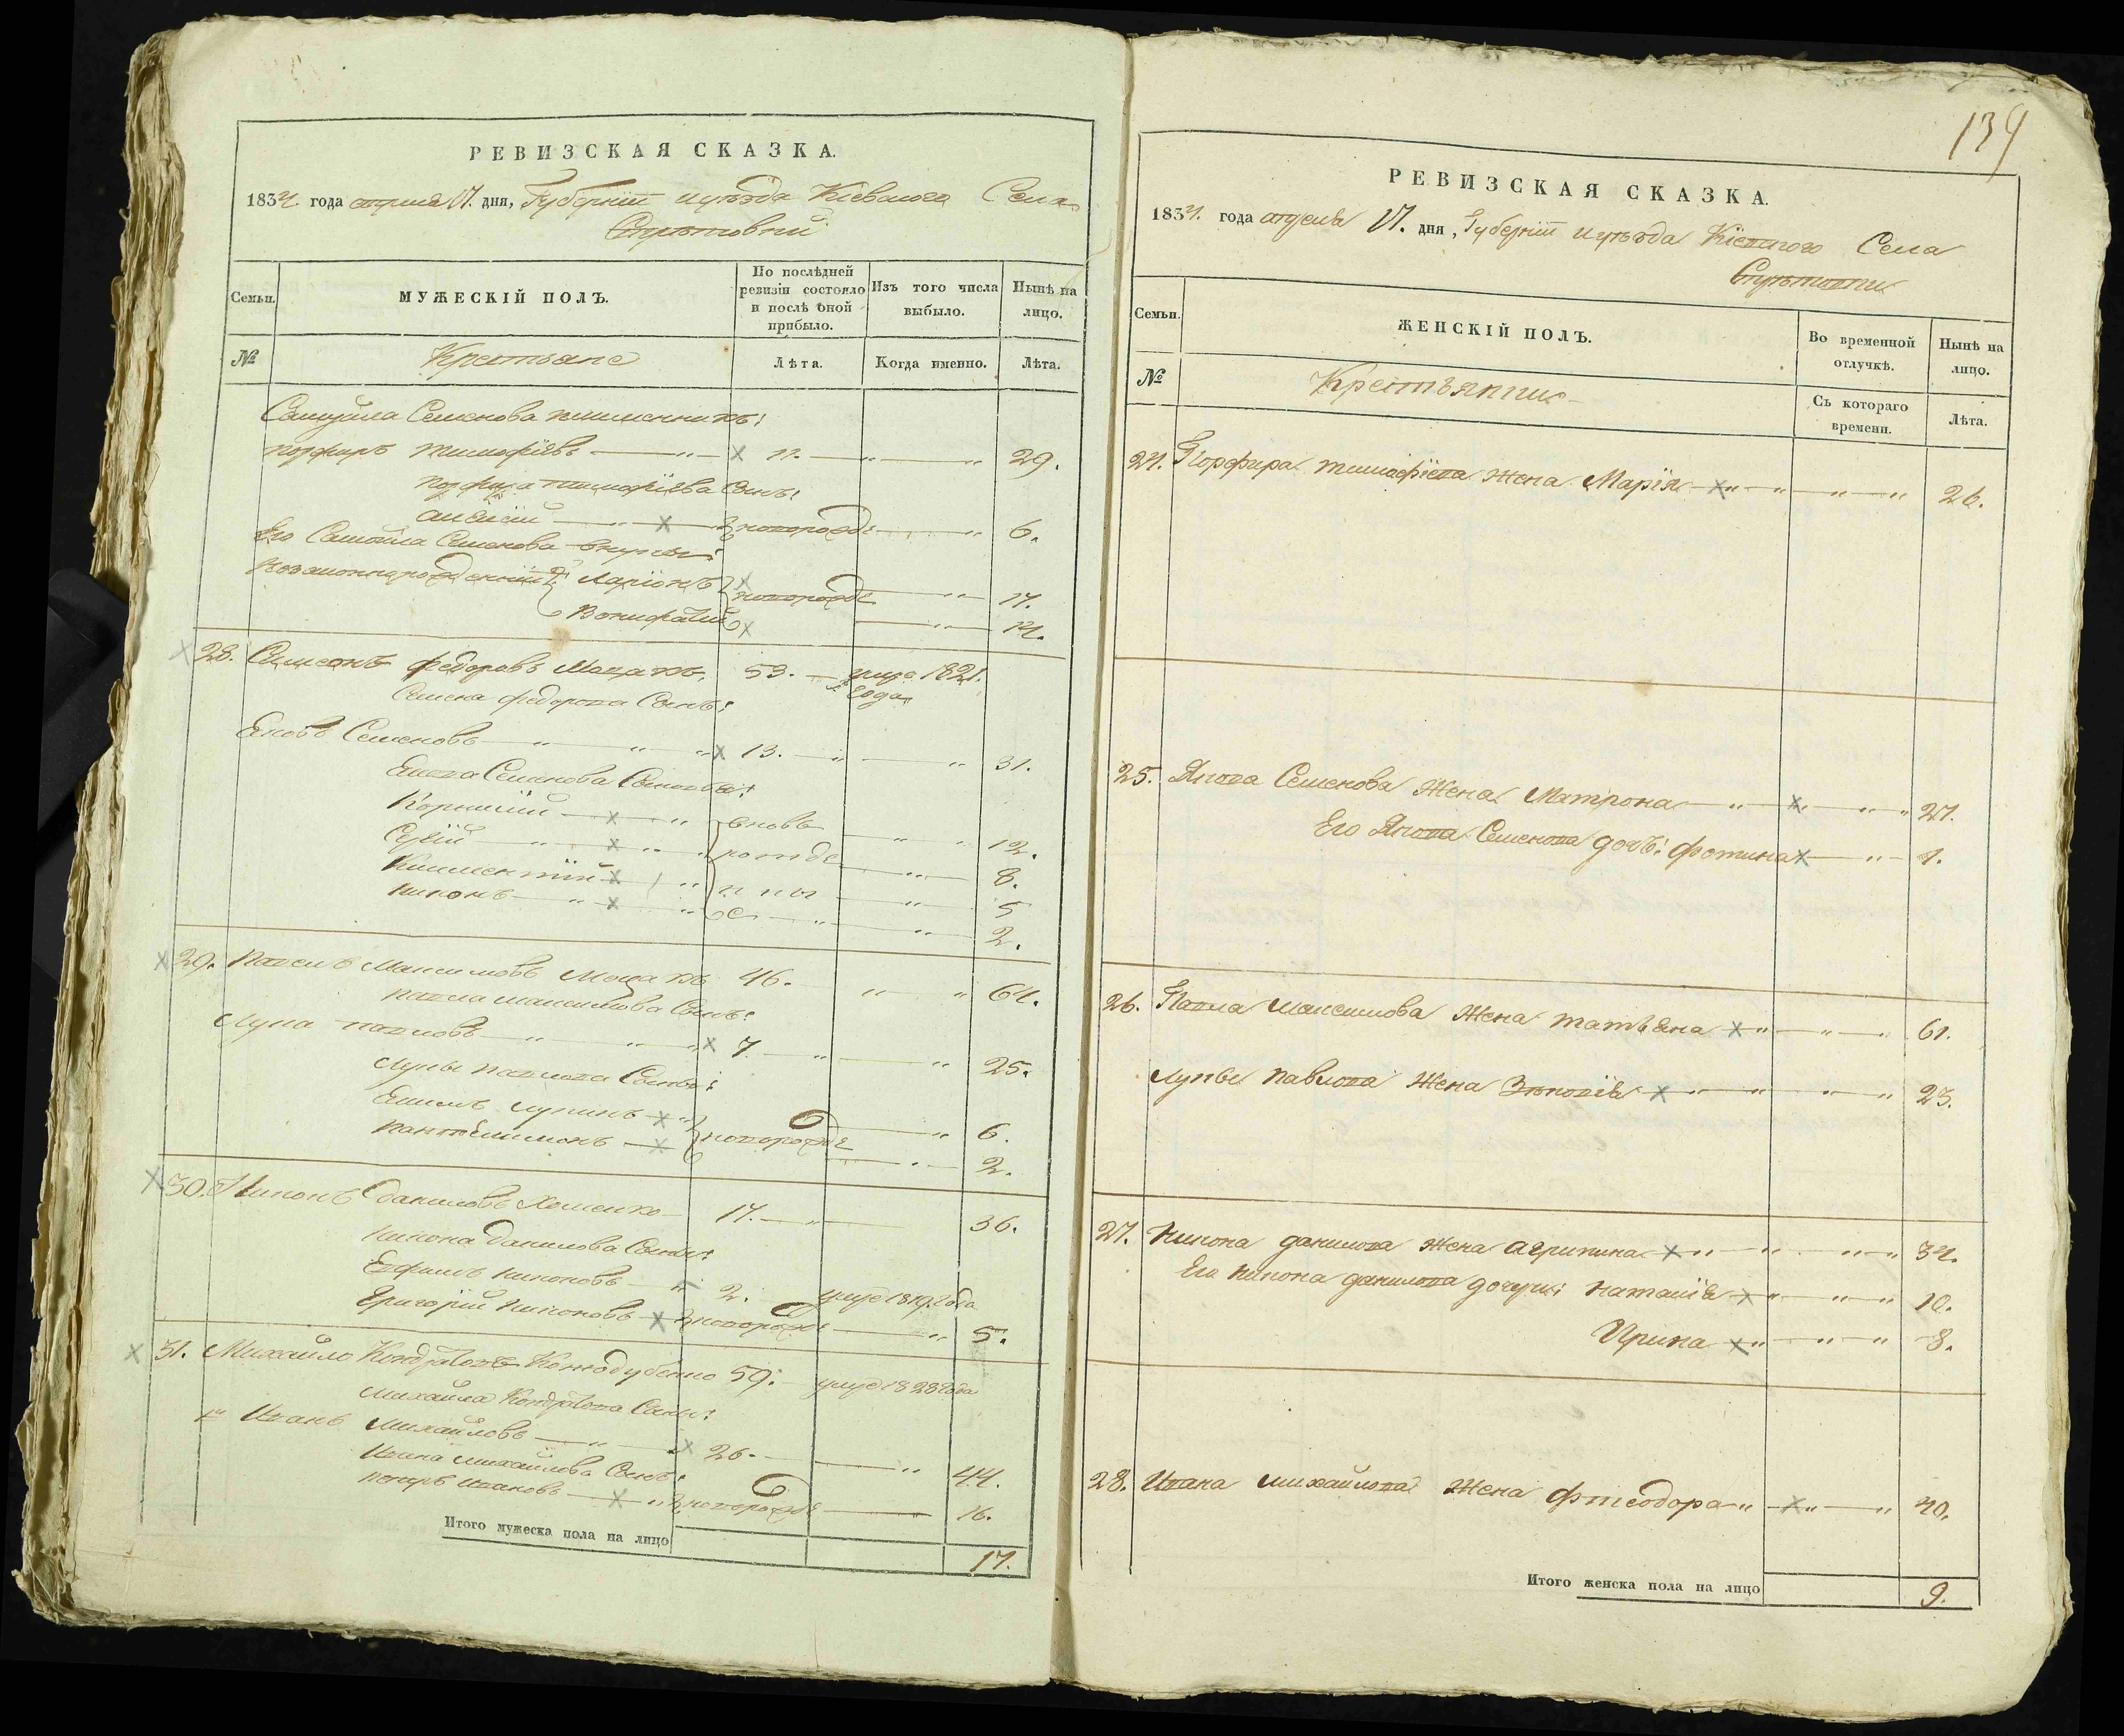 РЕВИЗСКАЯ СКАЗКА.
1834. года апреля 17. дня, Губернiи и уѣзда Кiевского Села
Семьи.
МУЖЕСКІЙ ПОЛЪ.
По послѣдней ревизіи состояло и послѣ оной прибыло.
Изъ того числа выбыло.
Нынѣ на лицо.
№
Крестьяне
Лѣта.
Когда именно.
Лѣта.
Самуйла Семенова племенникъ:
Порфиръ Тимофіевъ 11. 29.
Порфира Тимофіева Сынъ:
Алексій новорожде 6.
Его Самойла Семенова внуки:
Ларіонъ новорожде 17.
Вонифатий 14.
28. Симеонъ Федоровъ 53. умре 1821. года
Семена Федорова Сынъ:
Яковъ Семеновъ 13. 31.
Якова Семенова Сыновья:
Корнилій вновь 12.
Сергій рожде 8.
Климентій нны 5
Никонъ е 2.
29. Павелъ Максимовъ 46. 64.
Павла Максимова Сынъ:
Лупа Павловъ 7. 25.
Лупы Павлова Сыны:
Лупинъ новорожде 6.
Пантелимонъ 2.
30. Никонъ Даниловъ Хоменко 17. 36.
Никона Данилова Сыны:
Евфимъ Никоновъ 2. умре 1819. года
Григорій Никоновъ новорожде 5.
31. Михайло Кондратовъ 59. умре 1828 года
Михайла Кондратова Сыны:
1й Иванъ Михайловъ 26. 44.
Ивана Михайлова Сынъ:
Петръ Ивановъ новорожде 16.
Итого мужеска пола на лицо 17.
139
РЕВИЗСКАЯ СКАЗКА.
1834. года апреля 17. дня, Губернiи и уѣзда Кiевского Села
Семьи.
ЖЕНСКІЙ ПОЛЪ.
Во временной отлучкѣ.
Нынѣ на лицо.
№
Крестьянки
Съ котораго времени.
Лѣта.
24. Порфира Тимофіева жена Марія 26.
25. Якова Семенова жена Матрона 27.
Его Якова Семенова дочь: Фотина 1.
26. Павла Максимова жена Татьяна 61.
Лупы Павлова жена Зѣновія 23.
27. Никона Данилова жена Агрипина 34.
Его Никона Данилова дочери: Наталія 10.
Ирина 8.
28. Ивана Михайлова жена Фтеодора 40.
Итого женска пола на лицо 9.